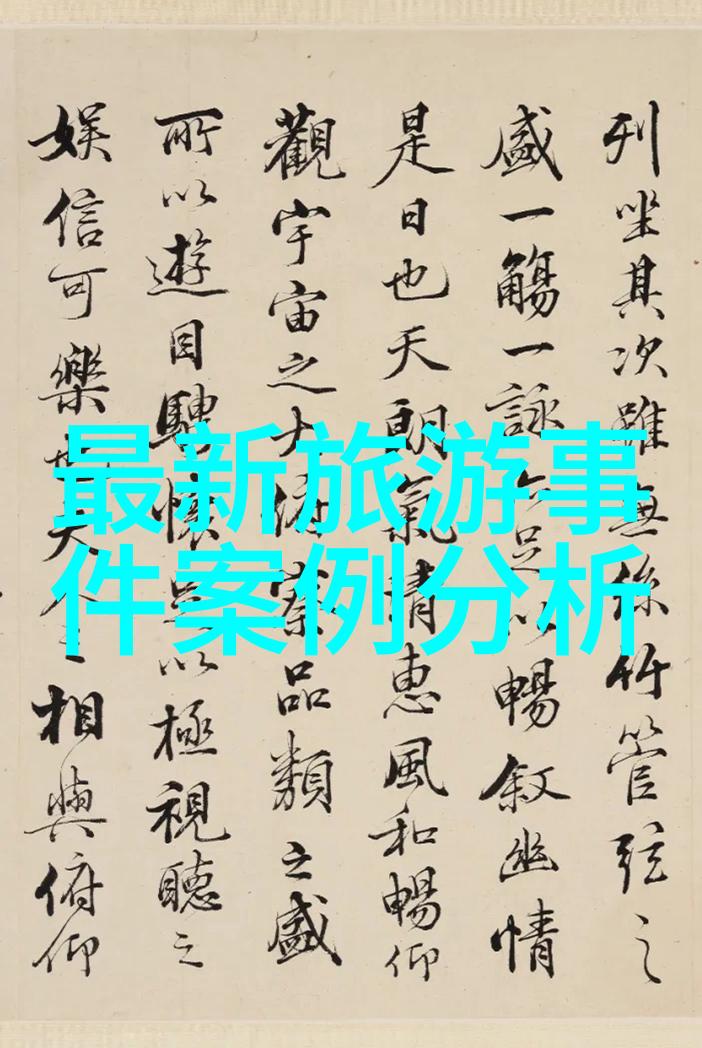 列坐其次雖無絲竹管弦之
盛一觴一詠亦足以暢叙幽情
是日也天朗氣清惠風和暢仰
觀宇宙之大俯察品類之盛
所以遊目騁懷足以極視聽之
娛信可樂也夫人之相與俯仰
最新旅游事
件案例分析